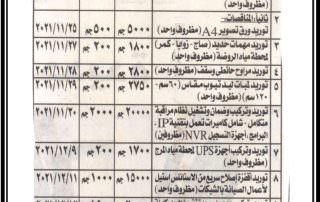 (مظروف واحد)
ثانياً: المناقصات
٢ توريد ورق تصوير A4 (مظروف واحد) ٥٠٠٠ جم ٥٠٠ جم ٢٠٢١/١١/٢٥
٣ توريد مهمات حديد (صاج - زوايا - كمر)
لمحطة مياه الروضة (مظروف واحد) ١٨٠٠ جم ٢٠٠ جم ٢٠٢١/١١/٢٨
٤ توريد مراوح حائطى وسقف (مظروف واحد) ٢٨٠٠ جم ٢٠٠ جم ٢٠٢١/١١/٢٨
٥ توريد لمبات ليد تيوب مقاس (٦٠سم -
١٢٠سم) (مظروف واحد) ٢٧٥٠ جم ٢٠٠ جم ٢٠٢١/١١/٢٩
٦ توريد وتركيب وضمان وتشغيل نظام مراقبة
متكامل - شامل كاميرات تعمل بتقنية IP-
البرامج، أجهزة التسجيل NVR (مظروفين) ٢٠٠٠٠ جم
٧ توريد وتركيب أجهزة UPS لمحطة مياه المرج
(مظروف واحد) ١٧٠٠ جم ٢٠٠ جم ٢٠٢١/١٢/٩
٨ توريد أفيزة إصلاح سريع من الاستانلس استيل
لأعمال الصيانة بالشبكات (مظروف واحد) ١٥٠٠٠ جم ١٠٠٠ جم ٢٠٢١/١٢/١١